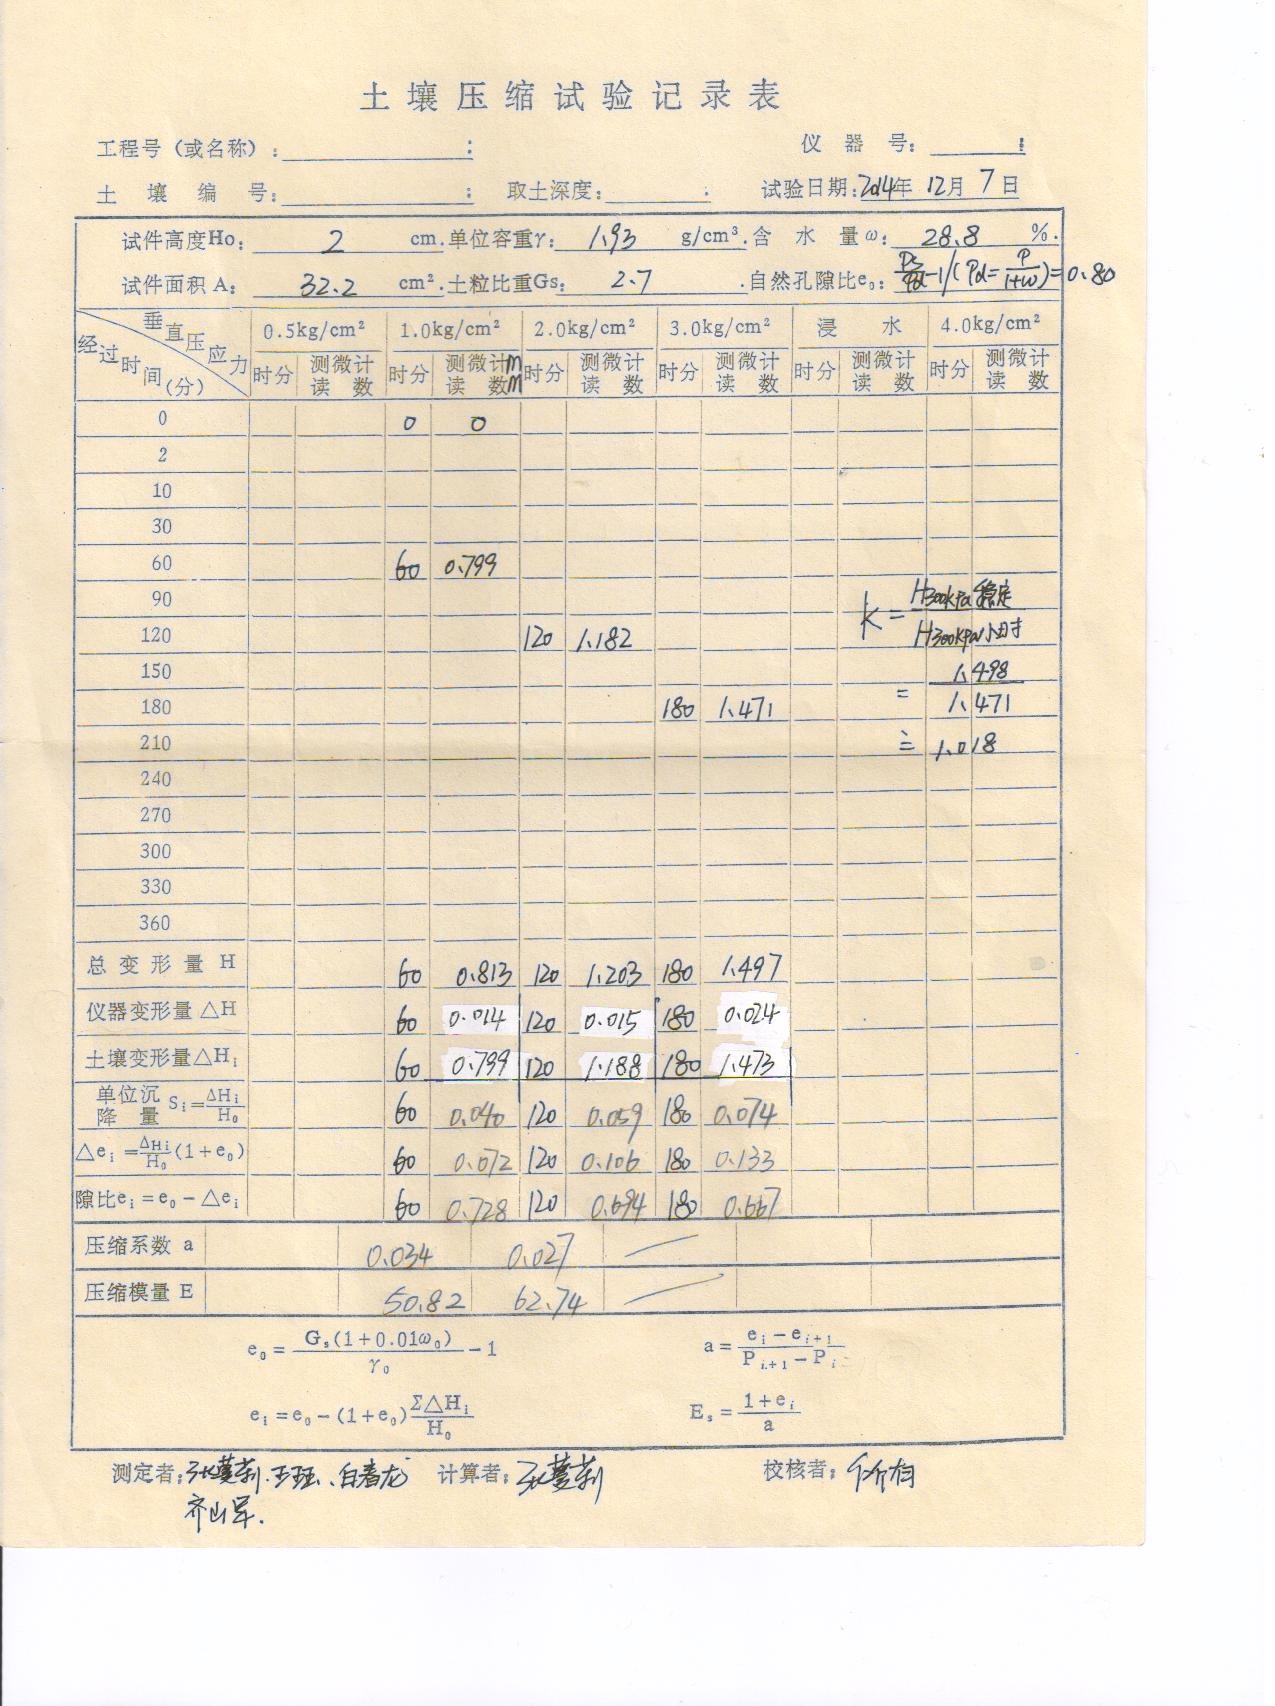 土壤压缩试验记录表
工程号（或名称）：　　　　； 仪器号：　　　；
土壤编号：　　　　； 取土深度：　　　； 试验日期：2014年12月7日
试件高度H₀： 2 cm. 单位容重γ： 1.93 g/cm³. 含水量ω： 28.8 %.
试件面积A： 32.2 cm². 土粒比重Gs： 2.7 . 自然孔隙比e₀： ρs/ρd-1/(ρd=ρ/(1+w))=0.80
垂直压应力 0.5kg/cm² 1.0kg/cm² 2.0kg/cm² 3.0kg/cm² 浸水 4.0kg/cm²
经过时间(分) 时分 测微计读数 时分 测微计读数 mm 时分 测微计读数 时分 测微计读数 时分 测微计读数 时分 测微计读数
0 0 0
2
10
30
60 60 0.799
90 K=H300kPa稳定/H300kPa小时
120 120 1.182
150 =1.498/1.471
180 180 1.471
210 ≐1.018
240
270
300
330
360
总变形量 H 60 0.813 120 1.203 180 1.497
仪器变形量△H 60 0.014 120 0.015 180 0.024
土壤变形量△Hᵢ 60 0.799 120 1.188 180 1.473
单位沉降量 Sᵢ=△Hᵢ/H₀ 60 0.040 120 0.059 180 0.074
△eᵢ=△Hᵢ/H₀(1+e₀) 60 0.072 120 0.106 180 0.133
隙比eᵢ=e₀-△eᵢ 60 0.728 120 0.694 180 0.667
压缩系数 a 0.034 0.027 —
压缩模量 E 50.82 62.74 —
e₀=Gₛ(1+0.01ω₀)/γ₀-1 a=(eᵢ-eᵢ₊₁)/(Pᵢ₊₁-Pᵢ)
eᵢ=e₀-(1+e₀)Σ△Hᵢ/H₀ Eₛ=(1+eᵢ)/a
测定者：张蔓莉、王珏、白春龙 计算者：张蔓莉 校核者：
齐山军.